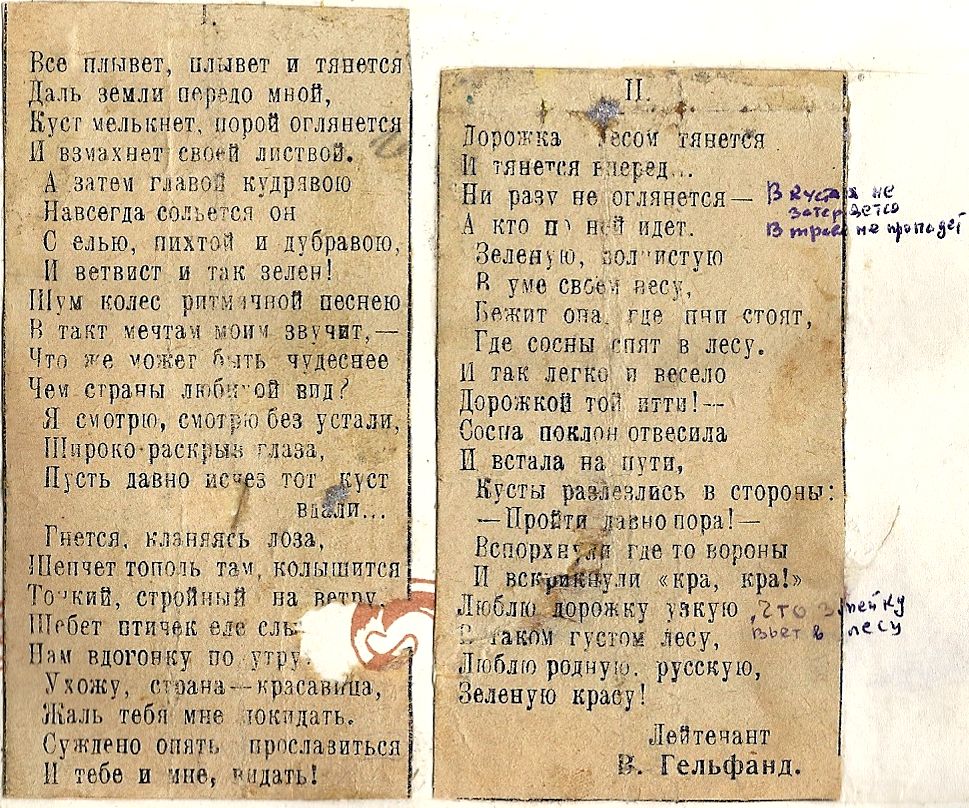 I.
Все плывет, плывет и тянется
Даль земли передо мной,
Куст мелькнет, порой оглянется
И взмахнет своей листвой.
А затем главой кудрявою
Навсегда сольется он
С елью, пихтой и дубравою,
И ветвист и так зелен!
Шум колес ритмичной песнею
В такт мечтам моим звучит,—
Что же может быть чудеснее
Чем страны любимой вид?
Я смотрю, смотрю без устали,
Широко-раскрыв глаза,
Пусть давно исчез тот куст
вдали...
Гнется, кланяясь лоза,
Шепчет тополь там, колышится
Тонкий, стройный на ветру,
Щебет птичек еле
Нам вдогонку по утру.
Ухожу, страна—красавица,
Жаль тебя мне покидать.
Суждено опять прославиться
И тебе и мне, видать!
II.
Дорожка лесом тянется
И тянется вперед...
Ни разу не оглянется—
А кто по ней идет.
Зеленую, волнистую
В уме своем несу,
Бежит она, где пни стоят,
Где сосны спят в лесу.
И так легко и весело
Дорожкой той итти!—
Сосна поклон отвесила
И встала на пути,
Кусты разлезлись в стороны:
—Пройти давно пора!—
Вспорхнули где то вороны
И вскрикнули «кра, кра!»
Люблю дорожку узкую
В таком густом лесу,
Люблю родную, русскую,
Зеленую красу!
Лейтенант
В. Гельфанд.
В кустах не
затеряется
В траве не пропадет
что змейку
вьет в лесу